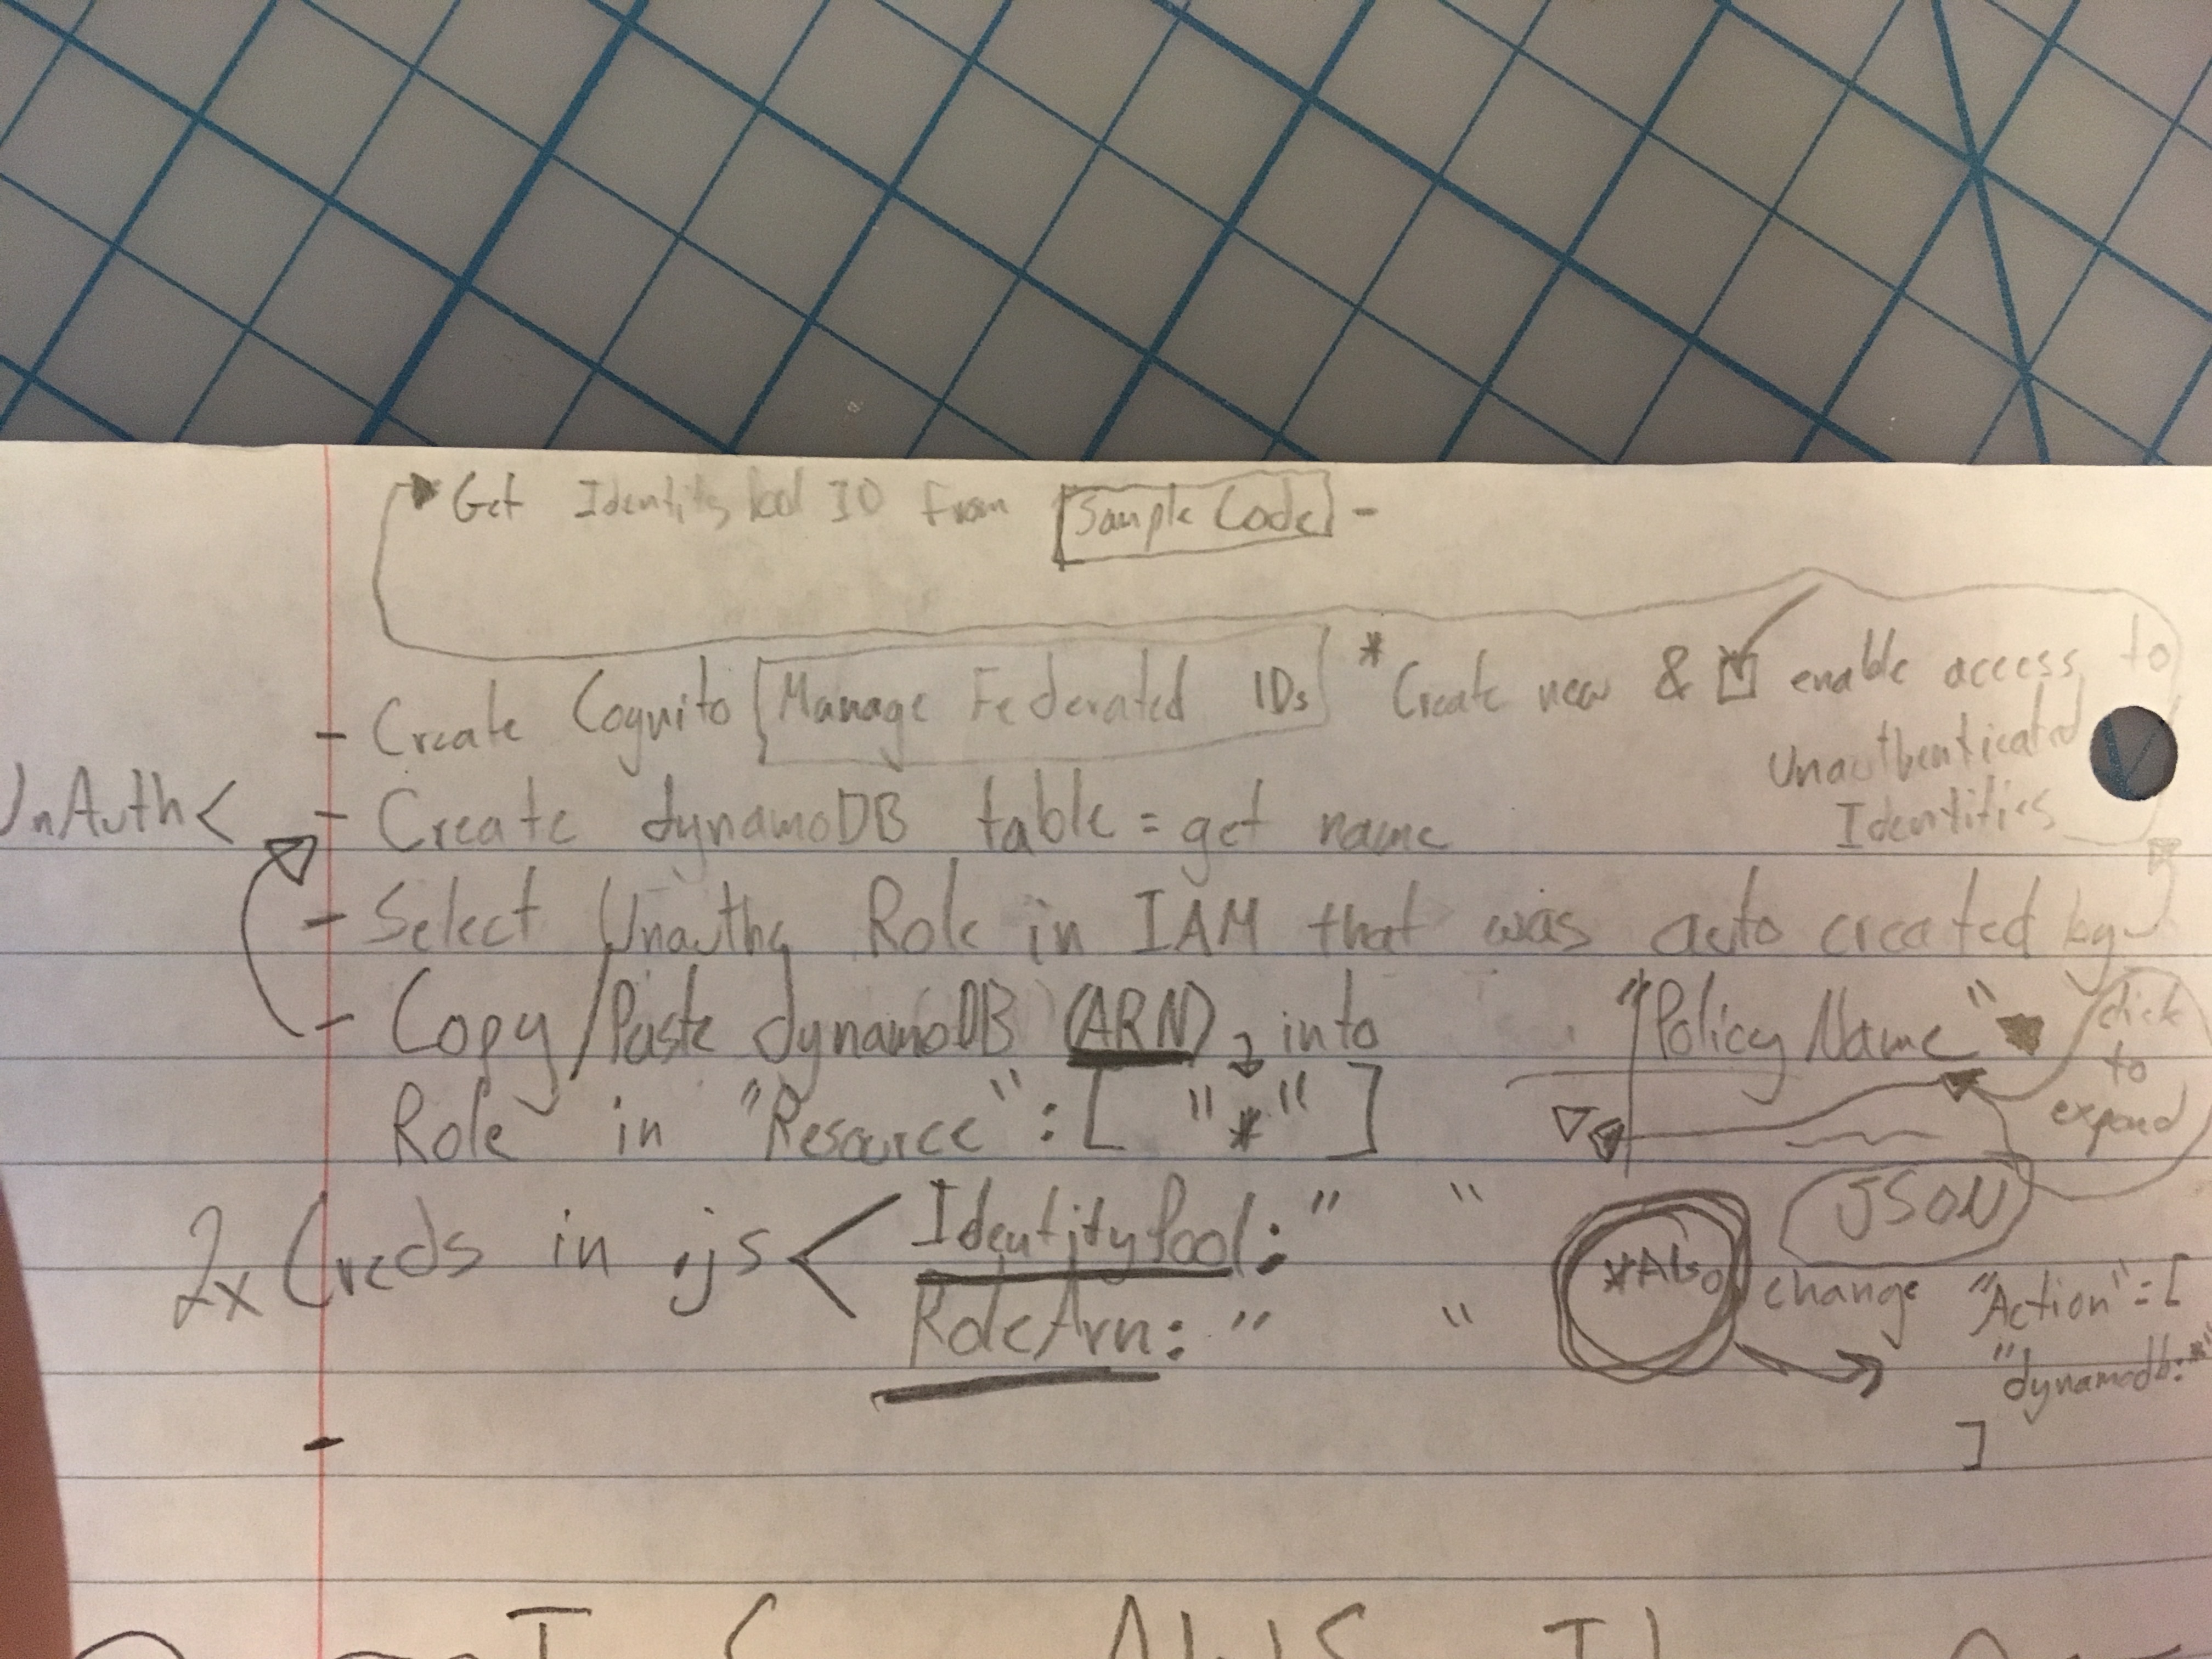 Get Identity Pool ID From Sample Code -
- Create Cognito Manage Federated IDs * Create new & ☑ enable access to
Unauthenticated
Identities
UnAuth < - Create dynamoDB table = get name
- Select Unauth Role in IAM that was auto created by
- Copy/Paste dynamoDB (ARN) into
Role in "Resource": [ "*" ]
"Policy Name"
click
to
expand
JSON
2x Creds in .js < IdentityPool: " "
RoleArn: " "
*Also change "Action": [
"dynamodb:*"
]